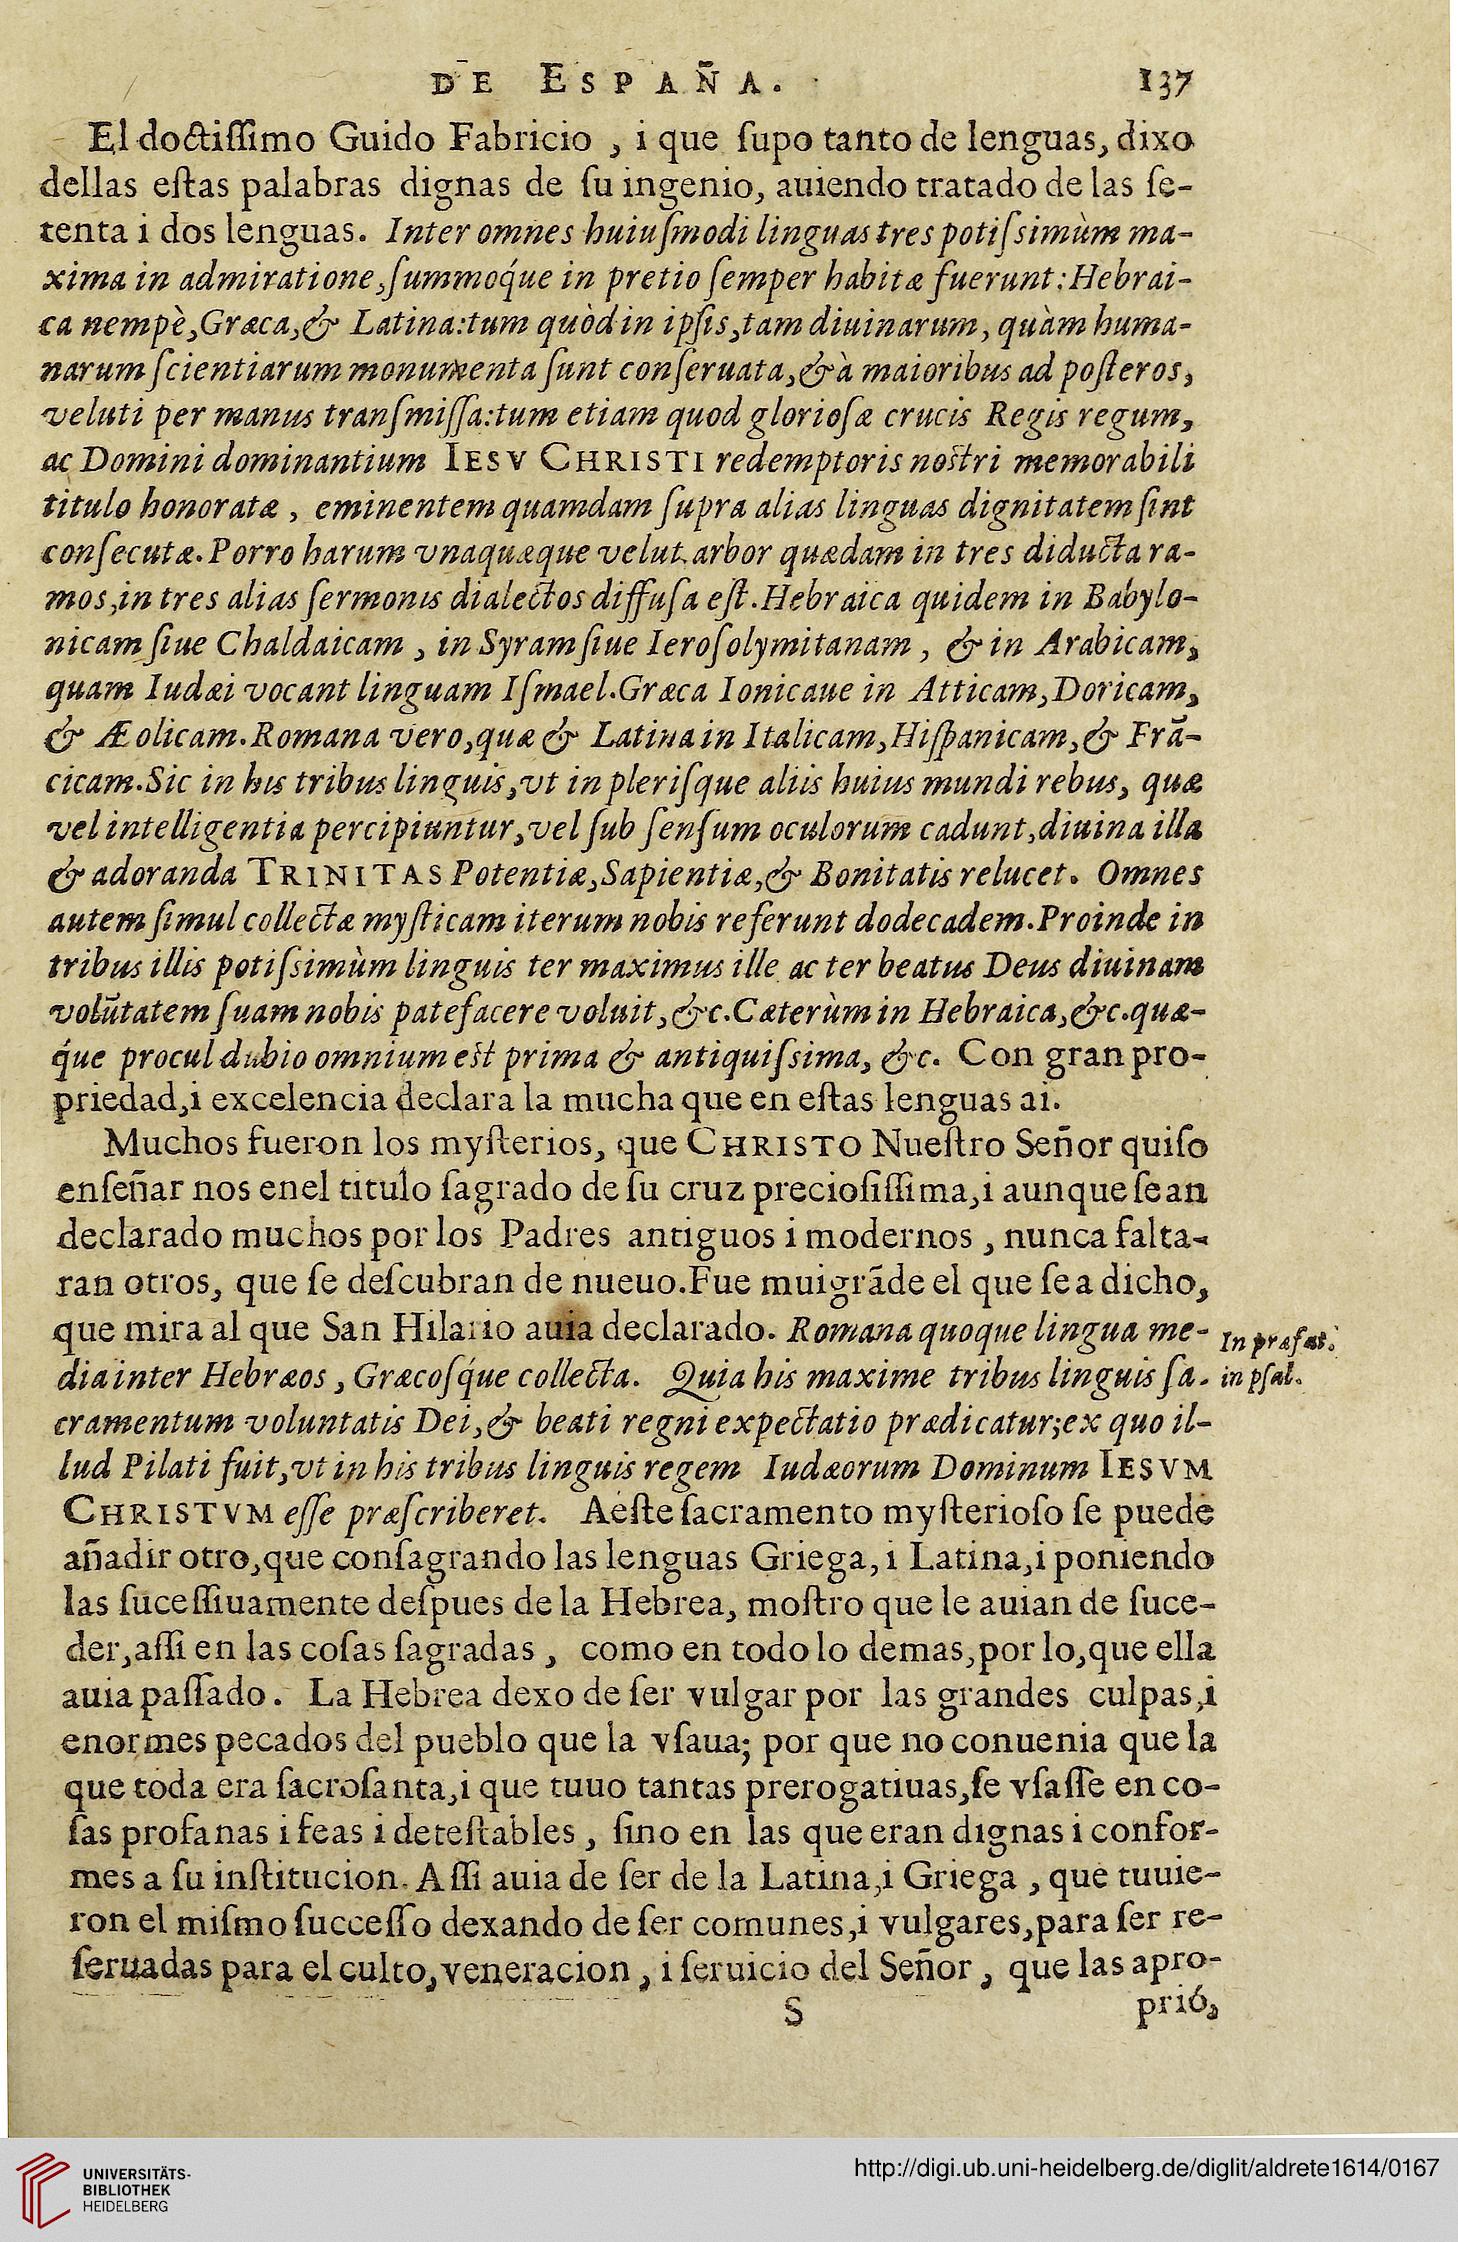 DE ESPAÑA. 137
El doctiſſimo Guido Fabricio , i que ſupo tanto de lenguas, dixo
dellas eſtas palabras dignas de ſu ingenio, auiendo tratado de las ſe-
tenta i dos lenguas. Inter omnes huiuſmodi linguas tres potiſsimùm ma-
xima in admiratione, ſummoq́ue in pretio ſemper habitæ fuerunt: Hebrai-
ca nempè, Græca, & Latina: tum quòd in ipſis, tam diuinarum, quàm huma-
narum ſcientiarum monumenta ſunt conſeruata, & à maioribus ad poſteros,
veluti per manus tranſmiſſa: tum etiam quod glorioſæ crucis Regis regum,
ac Domini dominantium IESV CHRISTI redemptoris noſtri memorabili
titulo honoratæ , eminentem quamdam ſupra alias linguas dignitatem ſint
conſecutæ. Porro harum vnaquæque velut arbor quædam in tres diducta ra-
mos, in tres alias ſermonis dialectos diffuſa eſt. Hebraica quidem in Babylo-
nicam ſiue Chaldaicam , in Syram ſiue Ieroſolymitanam , & in Arabicam,
quam Iudæi vocant linguam Iſmael. Græca Ionicaue in Atticam, Doricam,
& Æolicam. Romana vero, quæ & Latina in Italicam, Hiſpanicam, & Frã-
cicam. Sic in his tribus linguis, vt in pleriſque aliis huius mundi rebus, quæ
vel intelligentia percipiuntur, vel ſub ſenſum oculorum cadunt, diuina illa
& adoranda TRINITAS Potentiæ, Sapientiæ, & Bonitatis relucet. Omnes
autem ſimul collectæ myſticam iterum nobis referunt dodecadem. Proinde in
tribus illis potiſsimùm linguis ter maximus ille ac ter beatus Deus diuinam
volũtatem ſuam nobis patefacere voluit, &c. Cæterùm in Hebraica, &c. quæ-
q́ue procul dubio omnium eſt prima & antiquiſsima, &c. Con gran pro-
priedad, i excelencia declara la mucha que en eſtas lenguas ai.
Muchos fueron los myſterios, que CHRISTO Nueſtro Señor quiſo
enſeñar nos enel titulo ſagrado de ſu cruz precioſiſſima, i aunque ſean
declarado muchos por los Padres antiguos i modernos , nunca falta-
ran otros, que ſe deſcubran de nueuo. Fue mui grãde el que ſe a dicho,
que mira al que San Hilario auia declarado. Romana quoque lingua me-
In præfat.
dia inter Hebræos , Græcoſq́ue collecta. Quia his maxime tribus linguis ſa-
in pſal.
cramentum voluntatis Dei, & beati regni expectatio prædicatur; ex quo il-
lud Pilati fuit, vt in his tribus linguis regem Iudæorum Dominum IESVM
CHRISTVM eſſe præſcriberet. A eſte ſacramento myſterioſo ſe puede
añadir otro, que conſagrando las lenguas Griega, i Latina, i poniendo
las ſuceſſiuamente deſpues de la Hebrea, moſtro que le auian de ſuce-
der, aſſi en las coſas ſagradas , como en todo lo demas, por lo, que ella
auia paſſado. La Hebrea dexo de ſer vulgar por las grandes culpas, i
enormes pecados del pueblo que la vſaua; por que no conuenia que la
que toda era ſacroſanta, i que tuuo tantas prerogatiuas, ſe vſaſſe en co-
ſas profanas i feas i deteſtables , ſino en las que eran dignas i confor-
mes a ſu inſtitucion. Aſſi auia de ſer de la Latina, i Griega , que tuuie-
ron el miſmo ſucceſſo dexando de ſer comunes, i vulgares, para ſer re-
ſeruadas para el culto, veneracion , i ſeruicio del Señor , que las apro-
S prió,
UNIVERSITÄTS-
BIBLIOTHEK
HEIDELBERG
http://digi.ub.uni-heidelberg.de/diglit/aldrete1614/0167